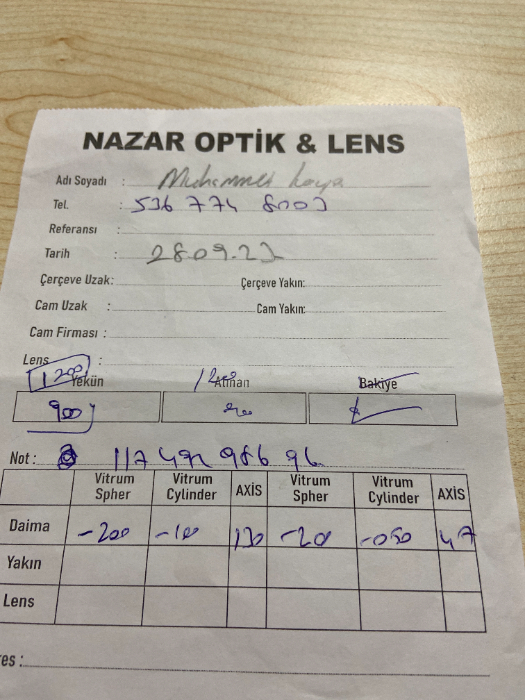 NAZAR OPTİK & LENS
Adı Soyadı : Muhammed kaya
Tel. : 536 774 8003
Referansı :
Tarih : 2809.22
Çerçeve Uzak: Çerçeve Yakın:
Cam Uzak : Cam Yakın:
Cam Firması :
Lens :
1200 Yekün Alınan Bakiye
900
Not : 117 492 986 96
Vitrum Spher Vitrum Cylinder AXİS Vitrum Spher Vitrum Cylinder AXİS
Daima -200 -100 130 -200 -050 47
Yakın
Lens
res :